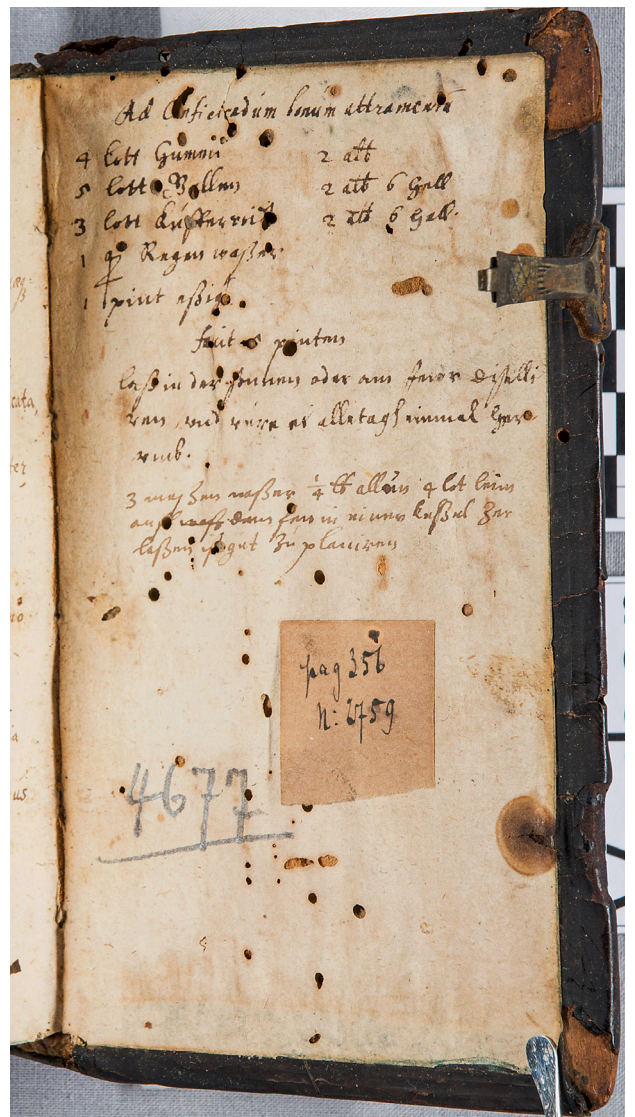 Ad Conficiendum bonum attramentum
4 lott Gummi 2 alb
5 lott Gallen 2 alb 6 hell
3 lott Kupferrauch 2 alb 6 hell.
1 qr Regen waßer
1 pint eßig
fiut pinten
laß in der sonnen oder am feur distilli
ren, vnd rüre es alle tagh einmal her
vmb.
3 maßen waßer ¼ lb allun 4 lot leim
in einer keßel zer
laßen ist gut zu planiren
pag 356
N: 2759
4677